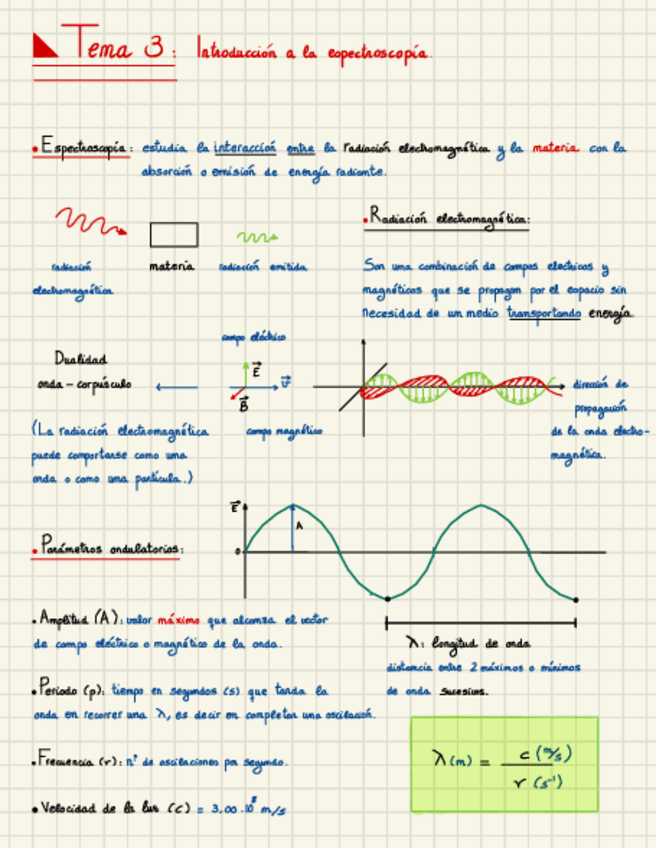 Tema 3: Introducción a la espectroscopía.
• Espectroscopía: estudia la interacción entre la radiación electromagnética y la materia con la
absorción o emisión de energía radiante.
radiación
electromagnética
materia
radiación emitida
• Radiación electromagnética:
Son una combinación de campos eléctricos y
magnéticos que se propagan por el espacio sin
necesidad de un medio transportando energía.
Dualidad
onda - corpúsculo
(La radiación electromagnética
puede comportarse como una
onda o como una partícula.)
campo eléctrico
E
v
B
campo magnético
dirección de
propagación
de la onda electro-
magnética.
• Parámetros ondulatorios:
E
0
A
• Amplitud (A): valor máximo que alcanza el vector
de campo eléctrico o magnético de la onda.
λ: longitud de onda
distancia entre 2 máximos o mínimos
de onda sucesivos.
• Periodo (p): tiempo en segundos (s) que tarda la
onda en recorrer una λ, es decir en completar una oscilación.
• Frecuencia (r): nº de oscilaciones por segundo.
• Velocidad de la luz (c) = 3,00·10⁸ m/s
λ (m) = c (m/s) / r (s⁻¹)